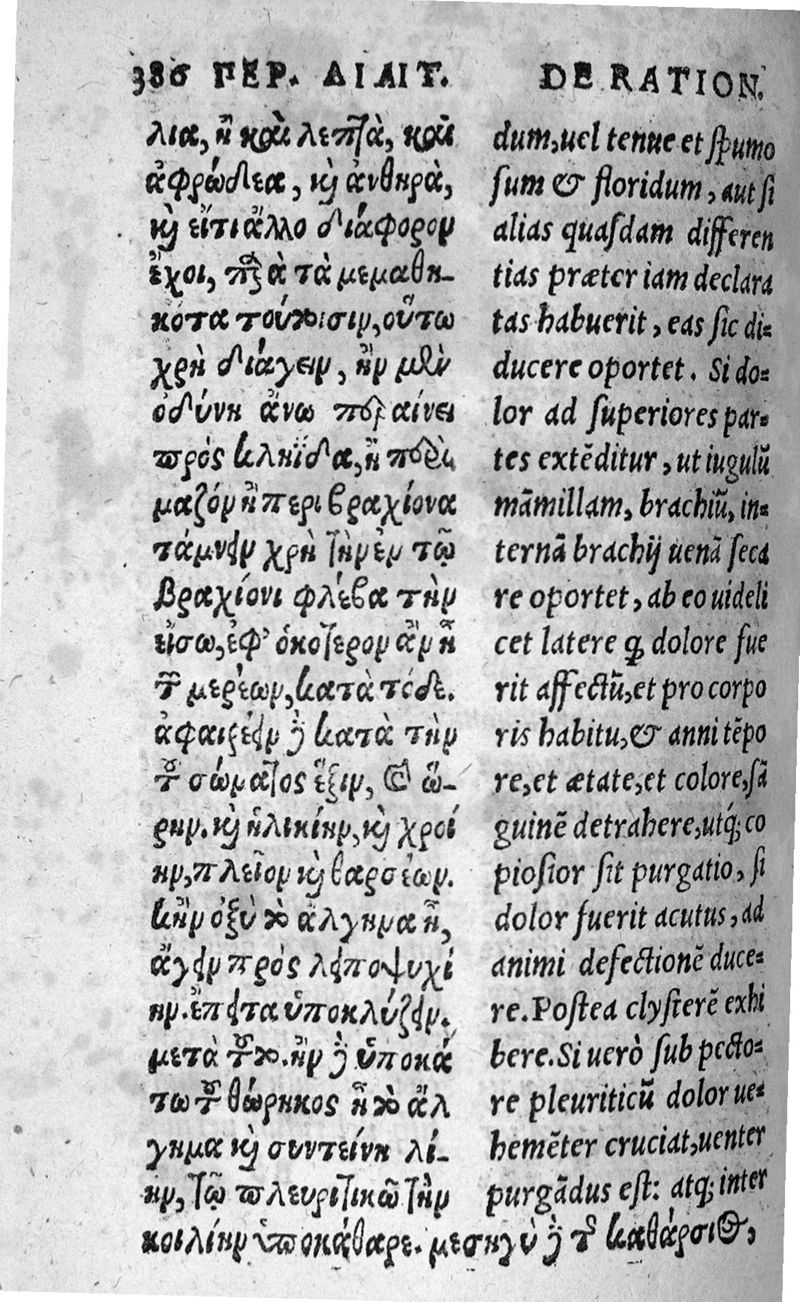 386 ΠΕΡ. ΔΙΑΙΤ.
λια, ἢ καὶ λεπτὰ, καὶ
ἀφρώδεα, καὶ ἀνθηρὰ,
καὶ εἴτι ἄλλο διάφορον
ἔχοι, παρὰ τὰ μεμαθη-
κότα τούτοισιν, οὕτω
χρὴ διάγειν, ἢν μὲν
ὀδύνη ἄνω περαίνει
πρὸς κληΐδα, ἢ περὶ
μαζόν ἢ περι βραχίονα
τάμνειν χρὴ τὴν ἐν τῷ
βραχίονι φλέβα τὴν
εἴσω, ἐφ' ὁκότερον ἂν ᾖ
τῶν μερέων, κατὰ τόδε.
ἀφαιρέειν δὲ κατὰ τὴν
τοῦ σώματος ἕξιν, καὶ ὥ-
ρην. καὶ ἡλικίην, καὶ χροί
ην, πλεῖον καὶ θαρσέων.
κἢν ὀξὺ τὸ ἄλγημα ᾖ,
ἄγειν πρὸς λειποψυχί
ην. ἔπειτα ὑποκλύζειν.
μετὰ τοῦτο. ἢν δὲ ὑποκά
τω τοῦ θώρηκος ᾖ τὸ ἄλ
γημα καὶ συντείνη λί-
ην, τῷ πλευριτικῶ τὴν
κοιλίην ὑποκάθαρε. μεσηγὺ δὲ τῆς καθάρσιος,
DE RATION.
dum, uel tenue et spumo
sum & floridum, aut si
alias quasdam differen
tias præter iam declara
tas habuerit, eas sic di-
ducere oportet. Si do-
lor ad superiores par-
tes extēditur, ut iugulū
māmillam, brachiū, in-
ternā brachij uenā seca
re oportet, ab eo uideli
cet latere q̃ dolore fue
rit affectū, et pro corpo
ris habitu, & anni tēpo
re, et ætate, et colore, sā
guinē detrahere, utq; co
piosior sit purgatio, si
dolor fuerit acutus, ad
animi defectionē duce-
re. Postea clysterē exhi
bere. Si uerò sub pecto-
re pleuriticū dolor ue-
hemēter cruciat, uenter
purgādus est: atq; inter